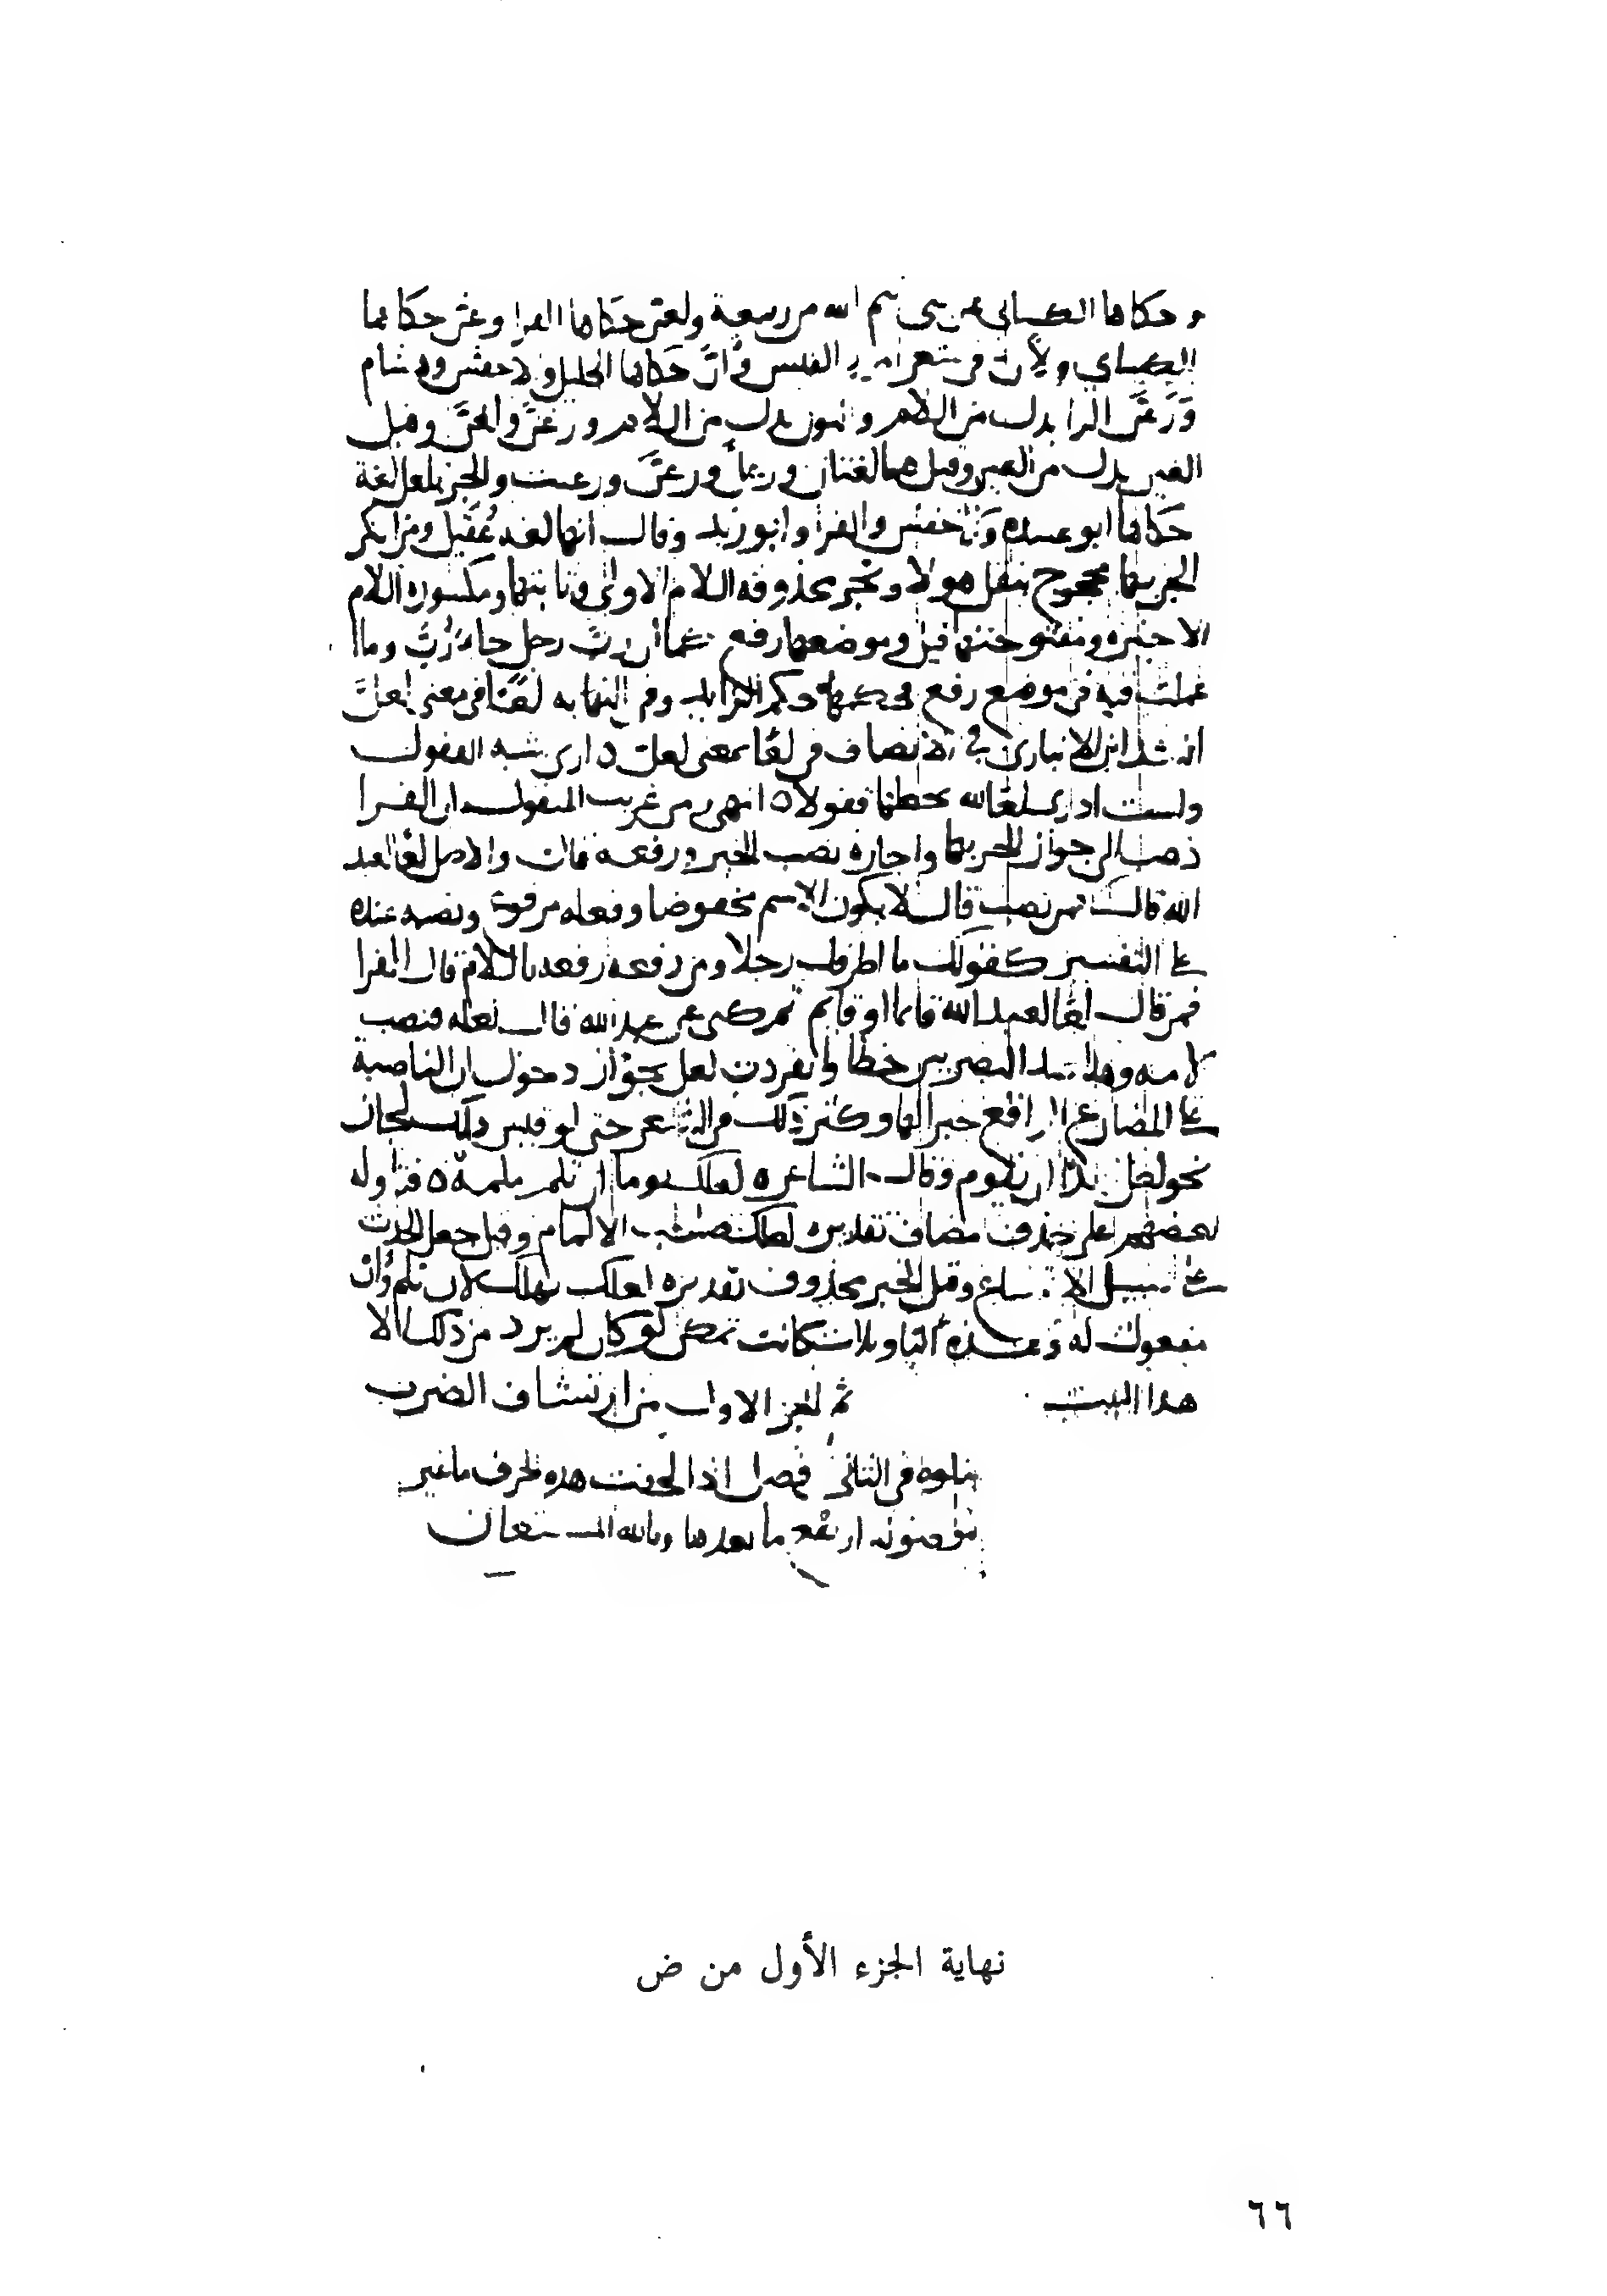 وحكاها الكسائي عن بني تيم الله من ربيعة ولعن حكاها الفرا وغن حكاهما
الكسائي ولأن في شعر امرئ القيس وأنّ حكاها الخليل والاخفش وهشام
ورعن الرا بدل من اللام والنون بدل من اللام ورغن والغن وقيل
الغين بدل من العين وقيل هما لغتان ورعنّ ولعلت والجر بلعل لغة
حكاها ابو عبيده والاخفش والفرا وابو زيد وقال انها لغه عُقَيل ومن انكر
الجر بها محجوج بنقل هولا وتجر محذوفه اللام الاولى وثابتتها ومكسوره اللام
الاخيره ومفتوحتها قيل وموضعها رفع كما ان رُبَّ رجل جاء رُبَّ وما
عملت فيه في موضع رفع فحكمها حكم الزايد وفي النهايه لعًا في معنى لعلّ
انشد ابن الانباري في الانصاف في لعًا بمعنى لعل دارى شبه القفول
ولست ادارى لعا الله
ذهب الى جواز الجر بها واجازه نصب الخبر ورفعه قال والاصل لعا لعبد
الله قال من نصب قال لا يكون الاسم مخفوضا وفعله مرفوع ونصبه عنده
على التفسير كقولك ما اظرفك رجلا ومن رفعه رفعه باللام قال الفرا
فمن قال لعا لعبد الله قايما او قايم ثم كنى عن عبد الله قال لعله فنصب
كلامه وهذا عند البصريين خطا وانفردت لعل بجواز دخول ان الناصبة
على المضارع الواقع خبرا لها وكثر ذلك في الشعر حتى لو قيس ذلك لجاز
نحو لعل زيدا ان يقوم وقال الشاعر ٥ لعلك يوما ان تلم ملمة ٥ فتاوله
بعضهم على حذف مضاف تقديره لعلك صاحب الالمام وقيل جعل الجثث
على سبيل الاتساع وقيل الخبر محذوف تقديره لعلك تهلك لان تلم وان
مفعول له وهذه التاويلات كانت تمكن لو كان لم يرد من ذلك الا
هذا البيت تم الجز الاول من ارتشاف الضرب
يتلوه في الثاني فصل اذا لحقت هذه الاحرف ما غير
موصوله ارتفع ما بعدها وبالله المستعان
نهاية الجزء الأول من ض
٦٦